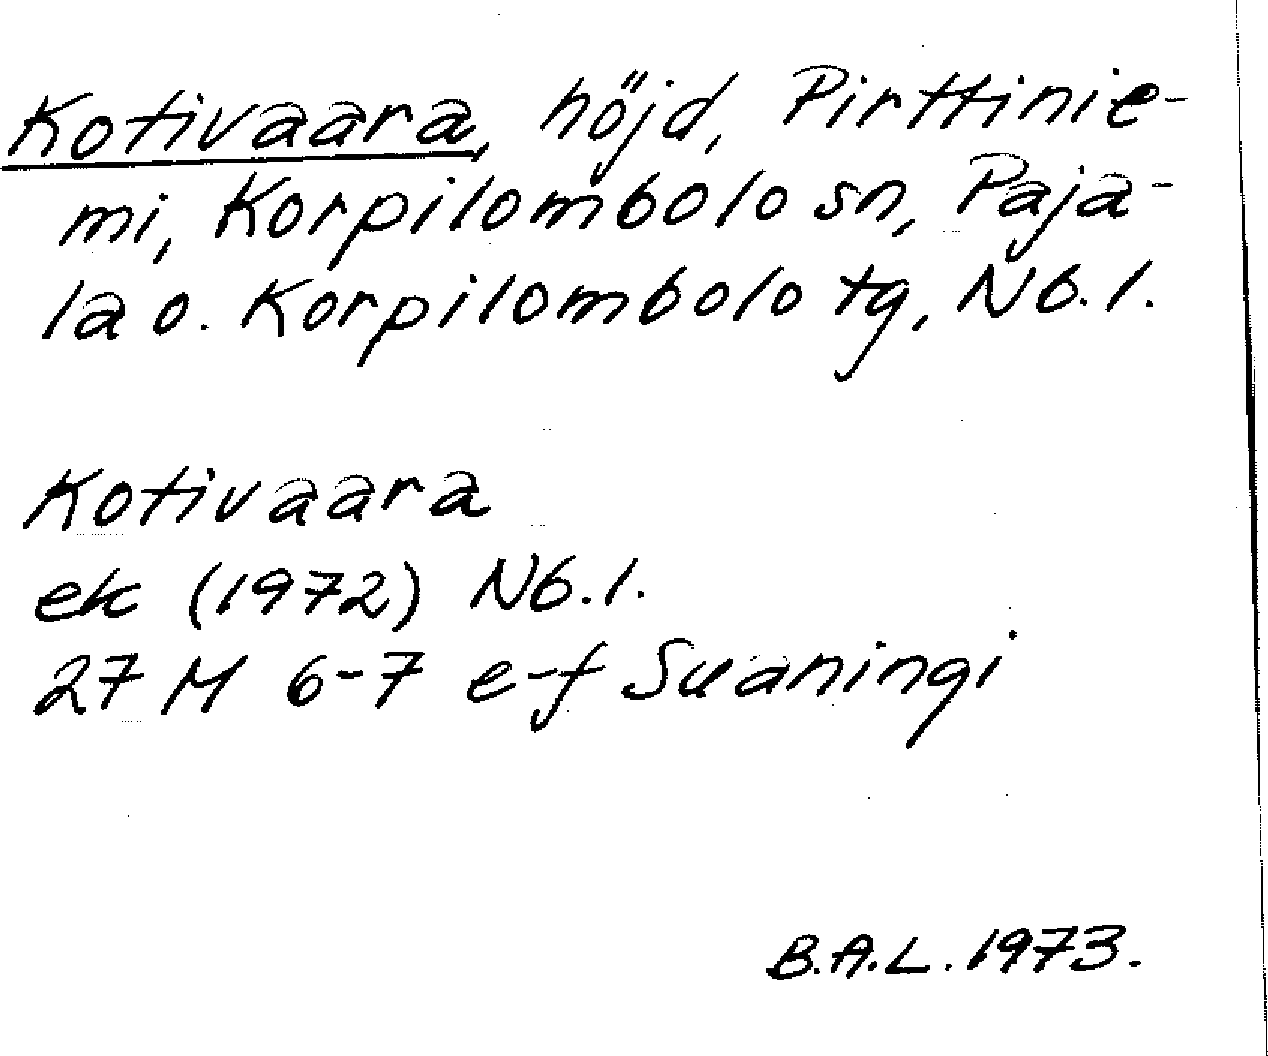 Kotivaara, höjd, Pirttinie-
mi, Korpilombolo sn, Paja-
la o. Korpilombolo tg, Nb.l.
Kotivaara
ek (1972) Nb.l.
27 M 6-7 e-f Suaningi
B.A.L. 1973.